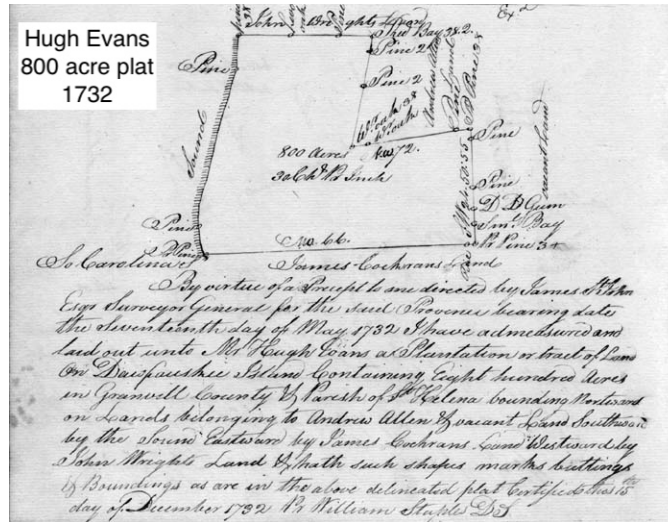 Hugh Evans
800 acre plat
1732
John Wrights Land
Pine
Red Bay 38.2.
Pine 2
Pine 2
Pine
Sound
Andrew Allen
Land
Pine 3x
W: Oak 3x
W: Oak
No. 72.
800 Acres
30 Chs. Pr. Inch
Pine
Pine
D D Gum
Sm. Bay
Pr. Pine 3x
vacant Land
Pine
Pr. Pine
No. 66.
So. Carolina
James Cochrans Land
By virtue of a Precept to me directed by James St. John
Esqr Surveyor General for the said Provence bearing date
the Seventeenth day of May 1732 I have admeasured and
laid out unto Mr. Hugh Evans a Plantation or tract of Land
on Daufauskee Island Containing Eight hundred Acres
in Granvill County & Parish of St. Helena bounding Norward
on Lands belonging to Andrew Allen & vacant Land Southward
by the Sound Eastward by James Cochrans Land Westward by
John Wrights Land & hath such shapes marks buttings
& Boundings as are in the above delineated plat Certified this 15th
day of December 1732 Pr William Staples D.S